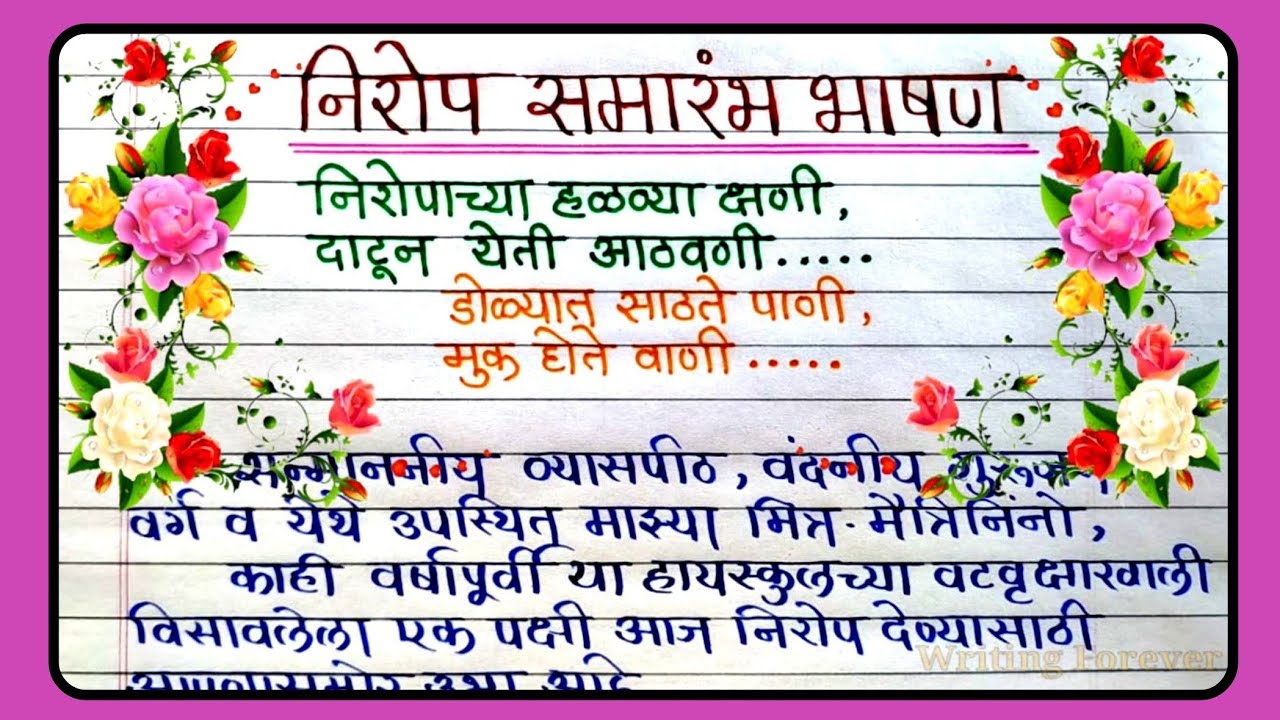 निरोप समारंभ भाषण
निरोपाच्या हळव्या क्षणी,
दाटून येती आठवणी.....
डोळ्यात साठते पाणी,
मुक होते वाणी.....
सन्माननीय व्यासपीठ, वंदनीय
वर्ग व येथे उपस्थित माझ्या मित्र-मैत्रिनिंनो,
काही वर्षापूर्वी या हायस्कुलच्या वटवृक्षाखाली
विसावलेला एक पक्षी आज निरोप देण्यासाठी
आपणासमोर उभा आहे
Writing Forever